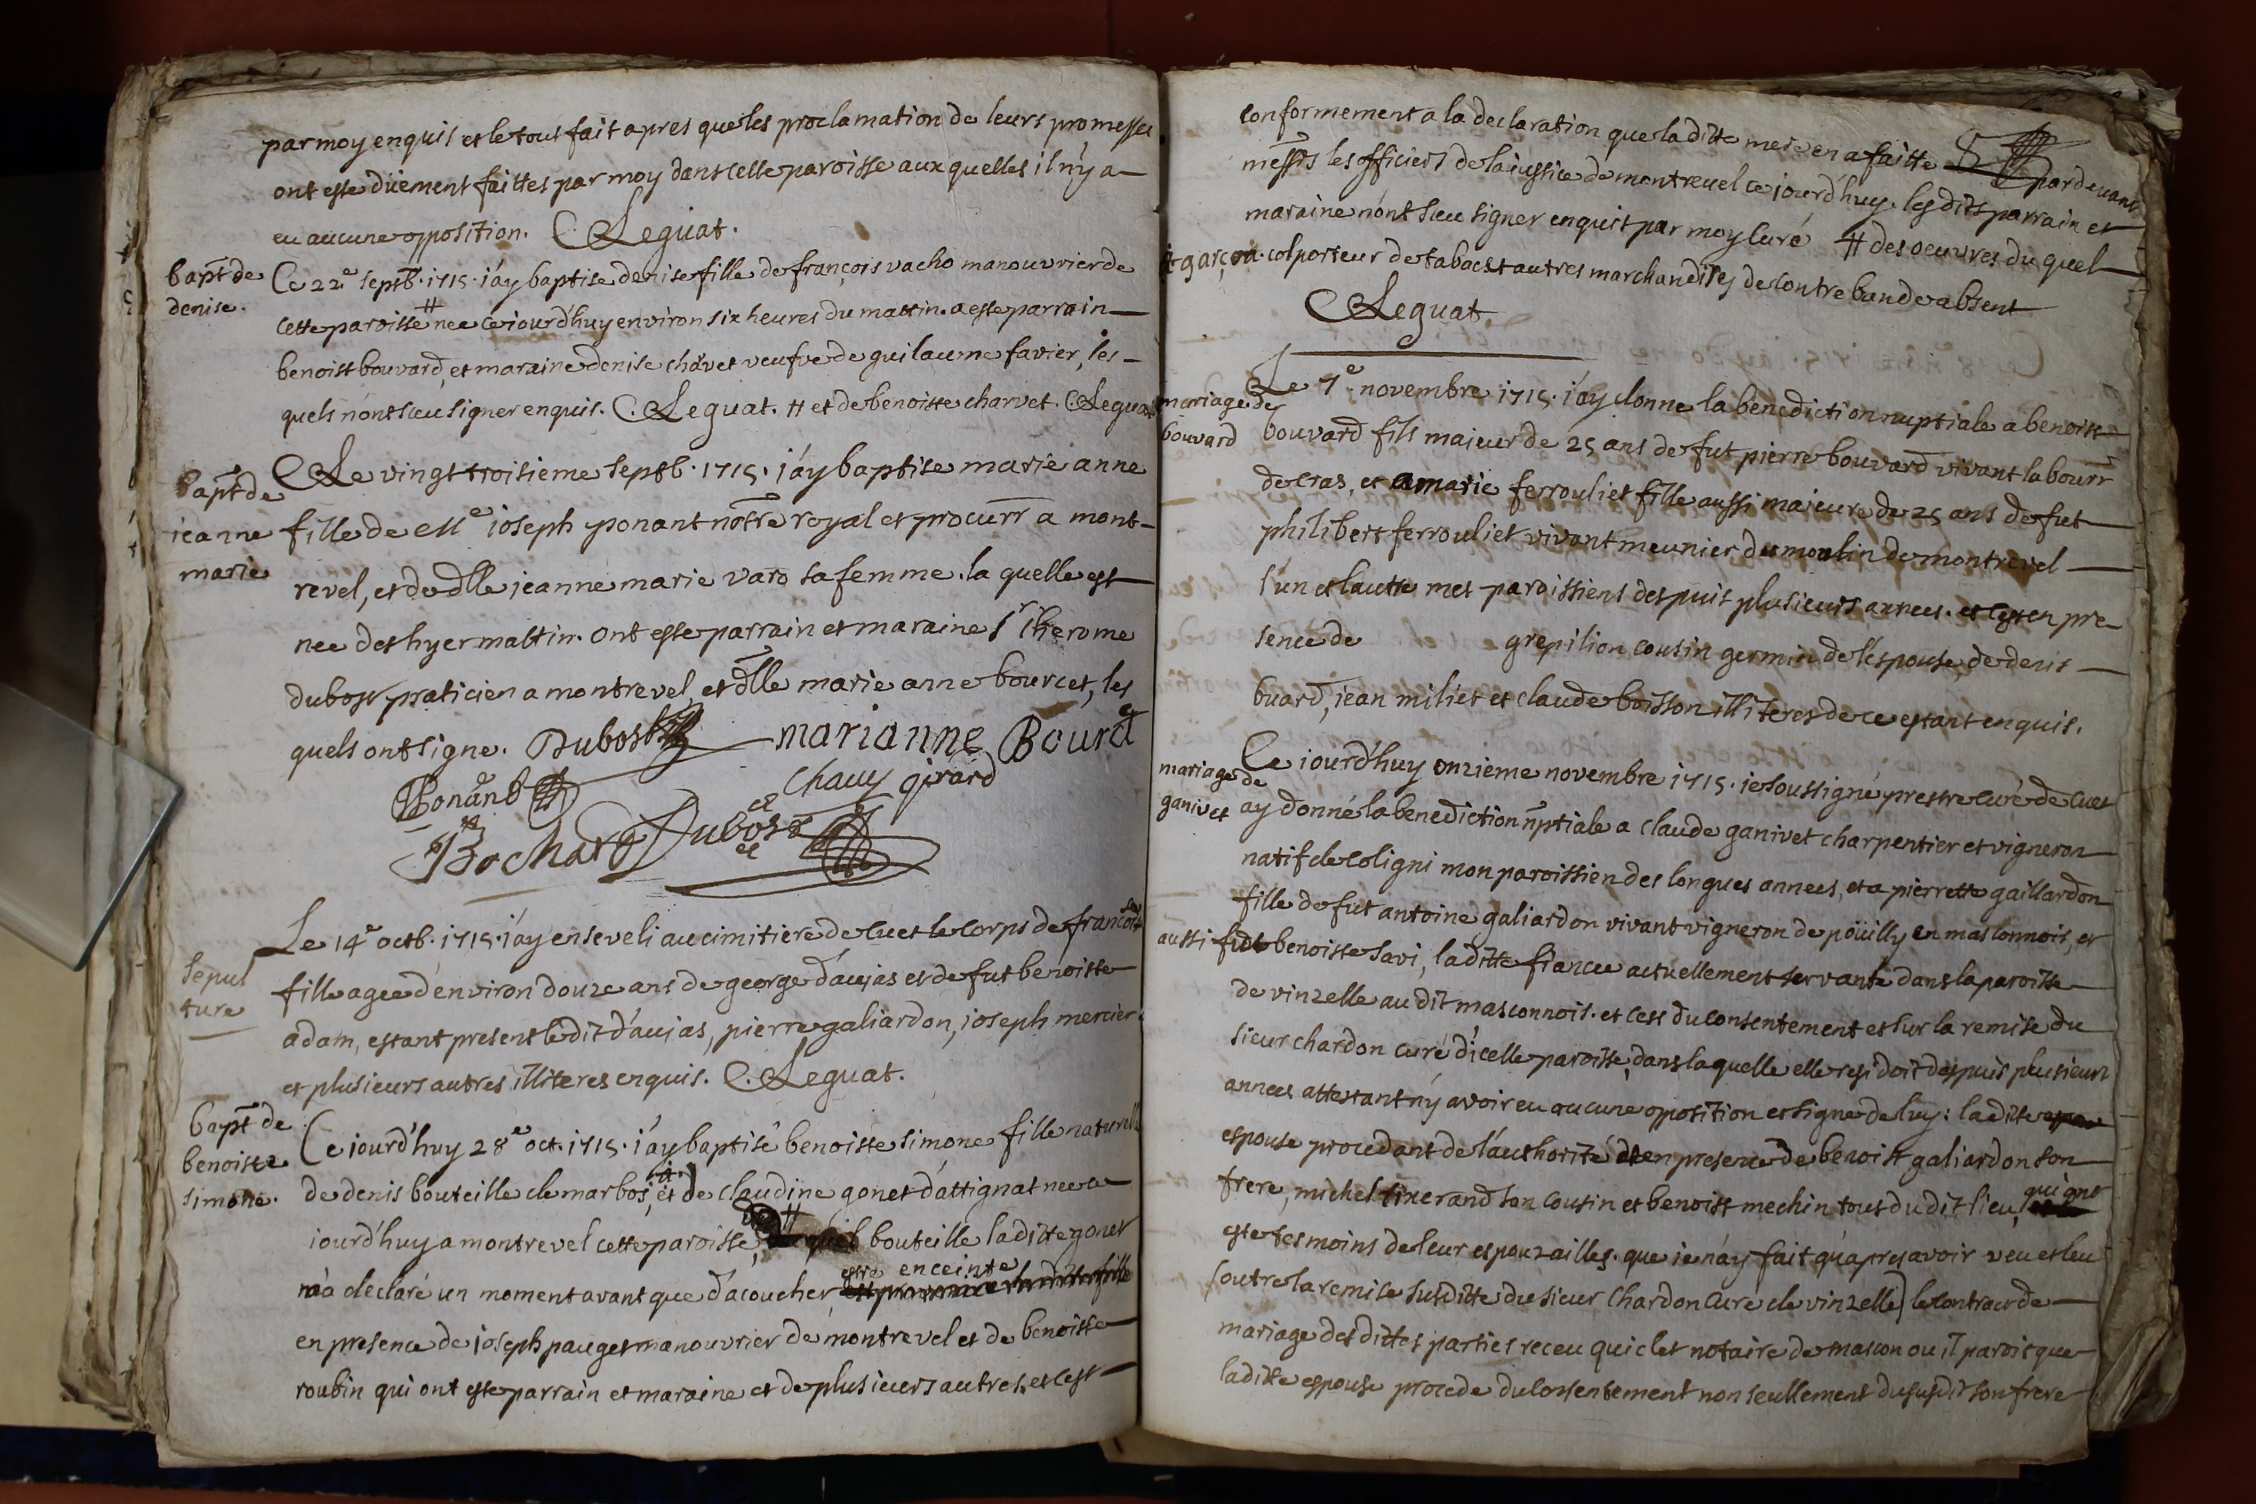 par moy enquis et le tout fait apres que les proclamation de leurs promesses
ont esté düement faittes par moy dans celle paroisse aux quelles il n'y a
eu aucune opposition. C. Leguat.
bapt de
denise.
Ce 22e septb. 1715. i'áy baptise denise fille de françois vacho manouvrier de
cette paroisse # nee ce iourd'huy environ six heures du mattin. a esté parrain
benoist bouvard, et maraine denise chavet veufve de guilaume favier, les
quels n'ont sceu signer enquis. C. Leguat. # et de benoitte charvet. C. Leguat
bapt de
ieanne
marie
Le vingt troisieme septb. 1715. i'áy baptise marie anne
fille de Me ioseph ponant notre royal et procurr a mont-
revel, et de dlle ieanne marie varo sa femme. la quelle est
nee des hyer mattin. ont esté parrain et maraine sr iherome
dubost praticien a montrevel, et dlle marie anne bourcet, les
quels ont signe. Dubost marianne Bourcet
Ponand chavy girard
Bochard Dubost
sepul
ture
Le 14e octb. 1715. i'áy enseveli au cimitiere de cuet le corps de françoise
fille agee d'environ douze ans de george d'aujas et de fut benoitte
adam, estant present le dit d'aujas, pierre galiardon, ioseph mercier
et plusieurs autres illiteres enquis. C. Leguat.
bapt de
benoitte
simone.
Ce iourd'huy 28e oct. 1715. i'áy baptisé benoitte simone fille naturelle
de denis bouteille de marbos, et de claudine gonet d'attignat nee ce
iourd'huy a montrevel cette paroisse, # bouteille la ditte gonet
m'a déclaré un moment avant que d'acoucher estre enceinte
en presence de ioseph pauget manouvrier de montrevel et de benoitte
roubin qui ont esté parrain et maraine et de plusieurs autres. et c'est
conformement a la declaration que la ditte mere en a faitte pardevant
messrs les officiers de la iustice de montrevel ce iourd'huy. les dits parrain et
maraine n'ont sceu signer enquis par moy curé # des oeuvres du quel
garçon. colporteur de tabacs et autres marchandises de contrebande absent
C. Leguat.
mariage de
bouvard
Le 7e novembre 1715. i'áy donne la benediction nuptiale a benoist
bouvard fils maieur de 25 ans de fut pierre bouvard vivant labourr
de cras, et a marie ferrouliet fille aussi maieure de 25 ans de fut
philibert ferrouliet vivant meunier du moulin de montrevel
l'un et lautre mes paroissiens despuis plusieurs annees. et c'est en pre-
sence de grepilion cousin germin de l'espouse, de denis
buard, iean miliet et claude boisson illiteres de ce estant enquis.
mariage de
ganivet
Ce iourd'huy onzieme novembre 1715. ie soussigné prestre curé de cuet
ay donné la benediction nptiale a claude ganivet charpentier et vigneron
natif de coligni mon paroissien des longues annees, et a pierrette gaillardon
fille de fut antoine galiardon vivant vigneron de poüilly en masconnois, et
aussi fut benoitte savi, la ditte fiancee actuellement servante dans la paroisse
de vinzelle au dit masconnois. et c'est du consentement et sur la remise du
sieur chardon curé d'icelle paroisse, dans laquelle elle residoit despuis plusieurs
annees attestant n'y avoir eu aucune opposition et signe de luy: la ditte
espouse procedant de l'authorité et en presence de benoist galiardon son
frere, michel tixerand son cousin et benoist mechin tous du dit lieu, qui ont
esté tesmoins de leur espouzailles. que ie n'áy fait qu'apres avoir veu et leu
(outre la remise susditte du sieur chardon curé de vinzelle) le contract de
mariage des dittes parties receu quiclet notaire de mascon ou il paroit que
la ditte espouse procede du consentement non seullement du susdit son frere